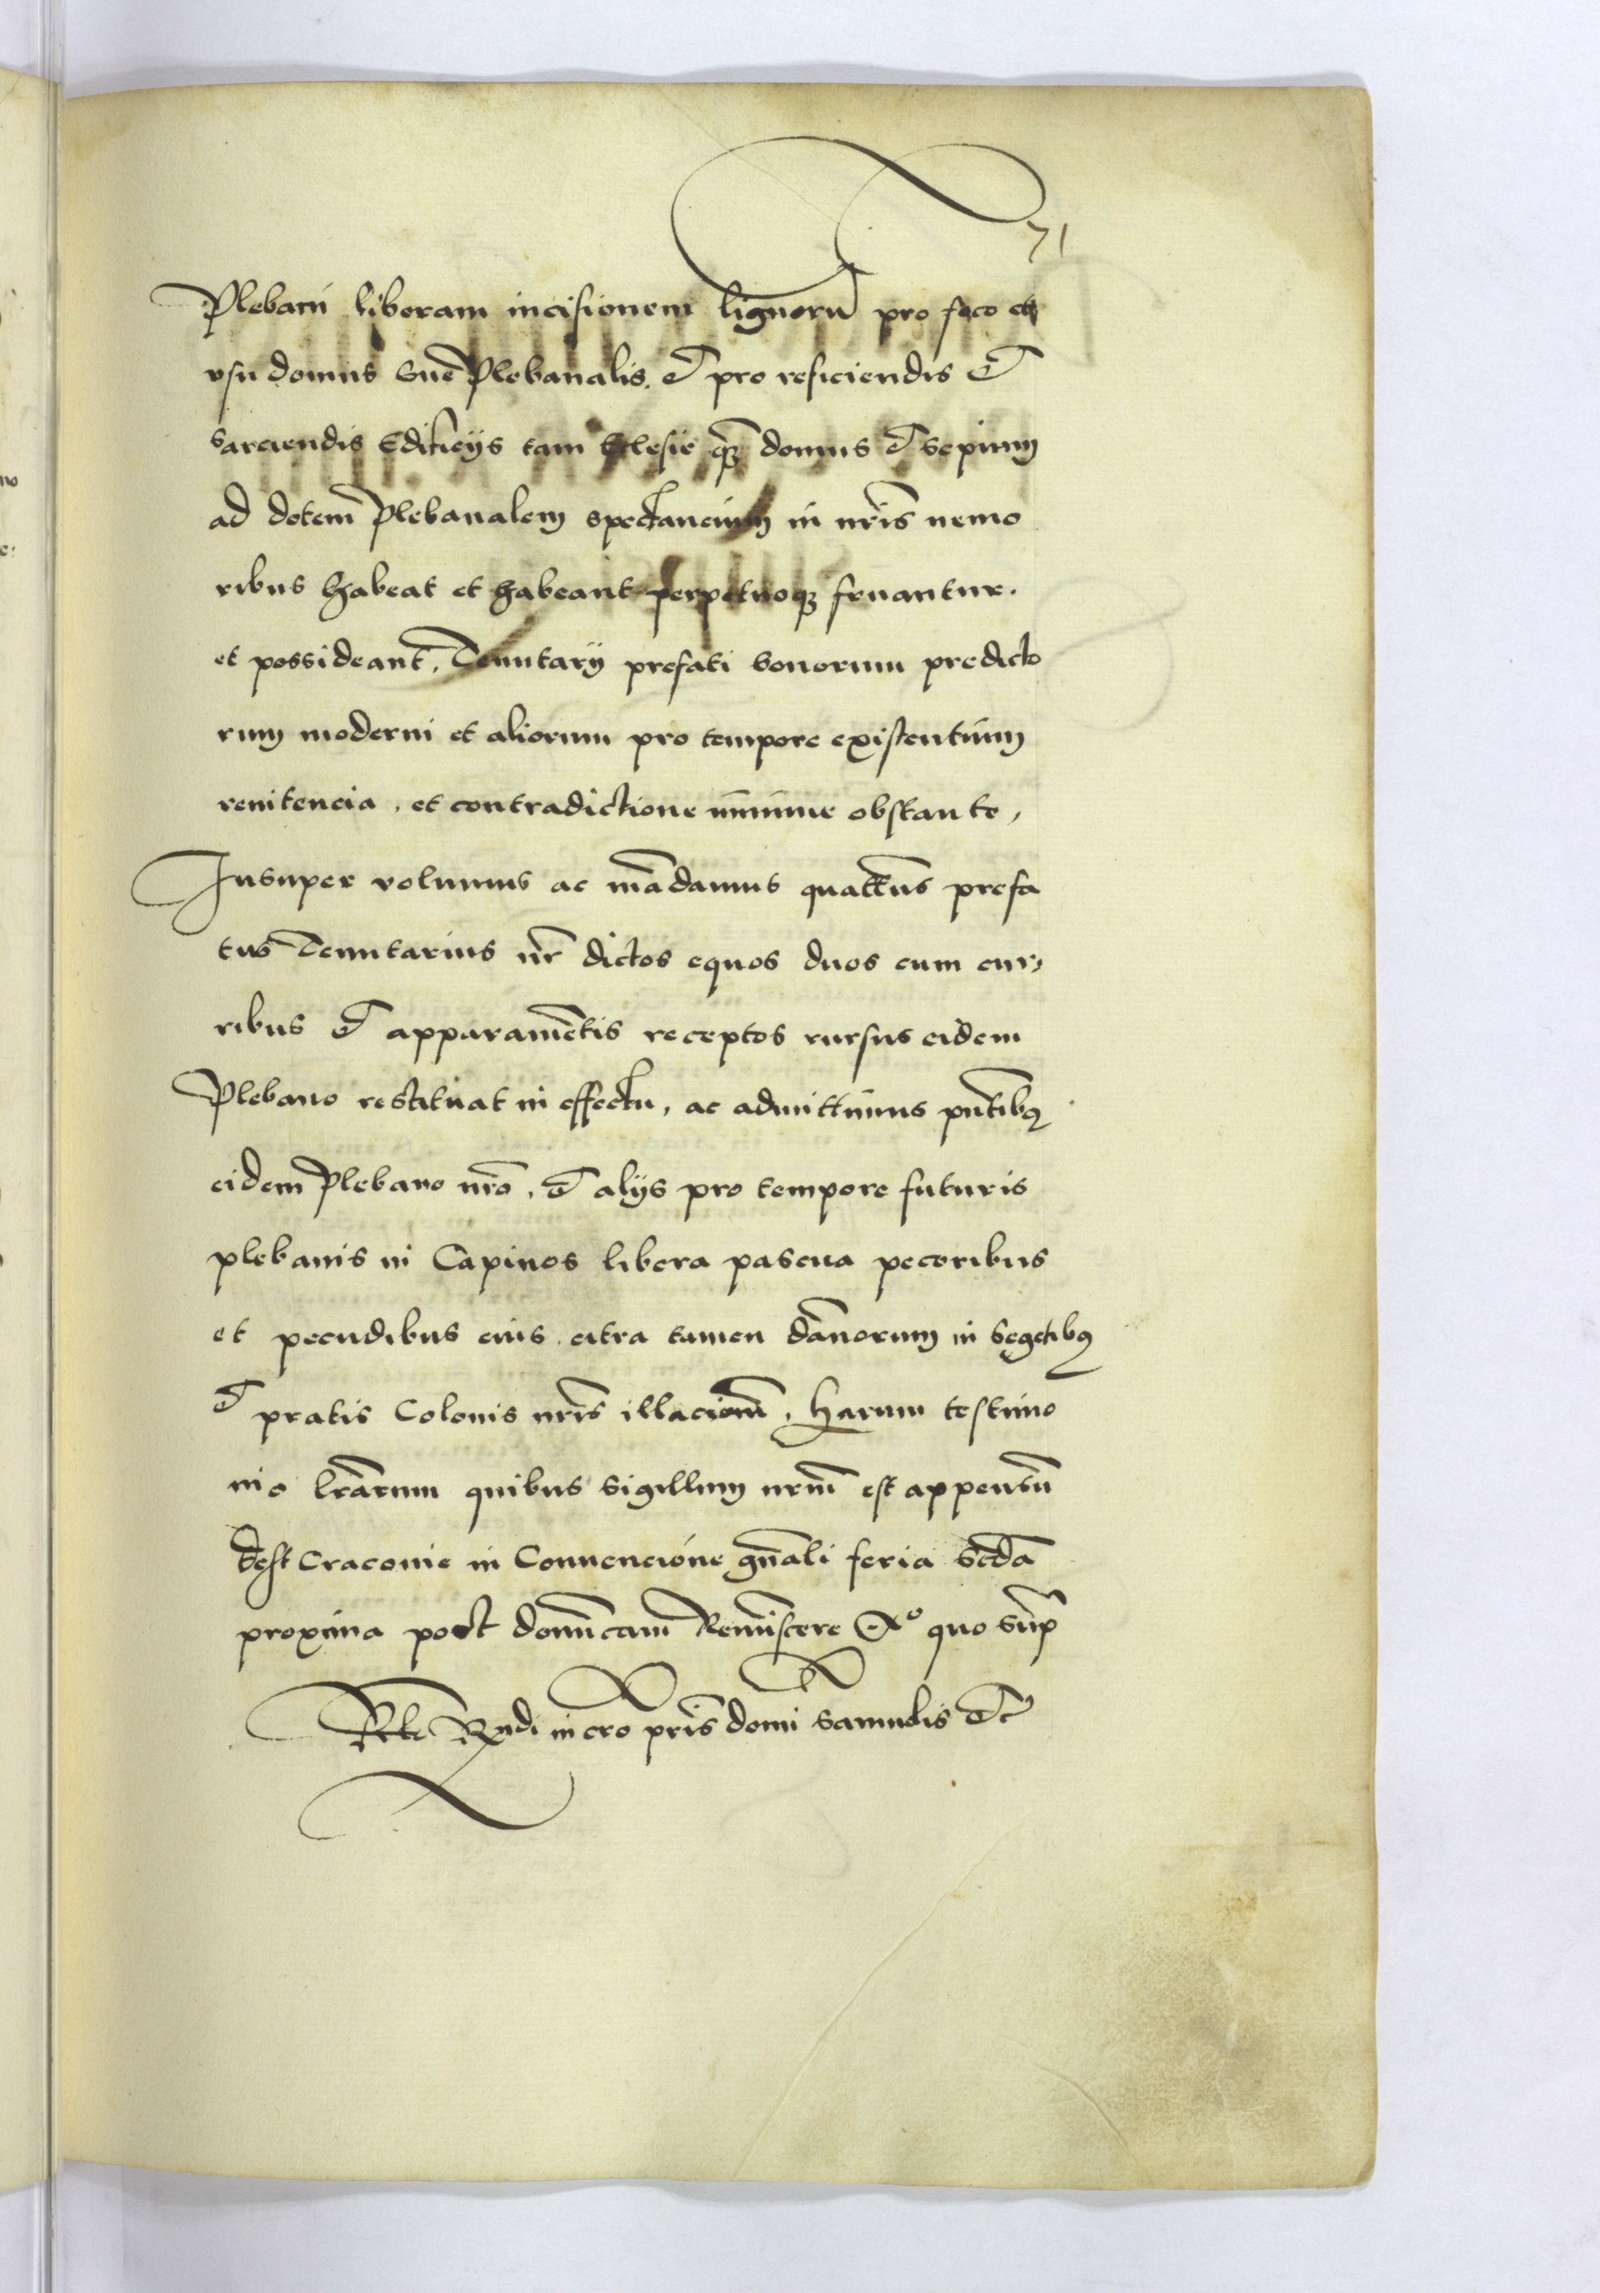 71
Plebani liberam incisionem lignorū pro foco et
vsu domus sue Plebanalis. et pro reficiendis et
sarciendis Edificijs tam Ecclesie qz domus et sepium
ad dotem Plebanalem spectancium in nrīs nemo
ribus habeat et habeant perpetuoqz fruantur.
et possideant, Tenutarij prefati bonorum predicto
rum moderni et aliorum pro tempore existentium
renitencia, et contradictione minime obstante,
Insuper volumus ac mādamus quatēus prefa
tus Tenutarius nr̄ dictos equos duos cum cur,
ribus et apparamētis receptos rursus eidem
Plebano restituat in effectu, ac admittimus pn̄tibꝫ
eidem Plebano nrō, et alijs pro tempore futuris
plebanis in Capinos libera pascua pecoribus
et pecudibus eius. citra tamen dānorum in segetibꝫ
et pratis Colonis nrīs illacionē, Harum testimo
nio lrārum quibus sigillum nrūm est appensū
dest Cracouie in Conuencione gn̄ali feria Scdā
proxima post domīcam Remīscere Ao quo supͣ
Rlo Rndi in cro prīs domi Samuelis etc